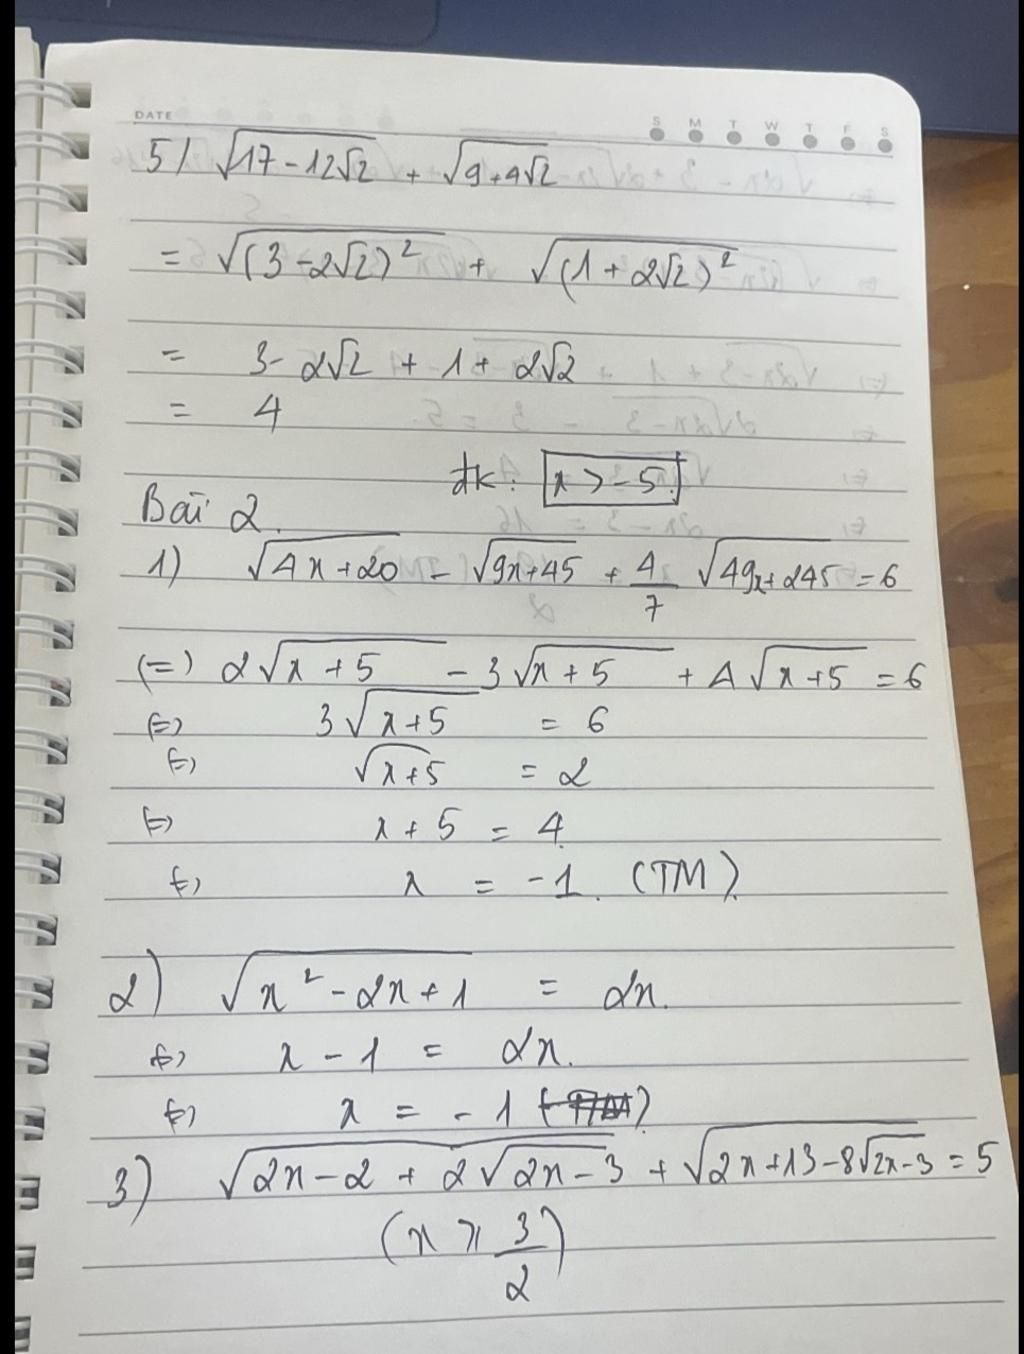 DATE S M T W T F S
5/ √(17-12√2) + √(9+4√2)
= √((3-2√2)²) + √((1+2√2)²)
= 3-2√2 + 1+2√2
= 4
đk: x > -5.
Bài 2.
1) √(4x+20) - √(9x+45) + 4/7 √(49x+245) = 6
(=) 2√(x+5) - 3√(x+5) + 4√(x+5) = 6
(=) 3√(x+5) = 6
(=) √(x+5) = 2
(=) x+5 = 4
(=) x = -1. (TM).
2) √(x²-2x+1) = 2x.
(=) x-1 = 2x.
(=) x = -1
3) √(2x-2+2√(2x-3)) + √(2x+13-8√(2x-3)) = 5
(x ⩾ 3/2)